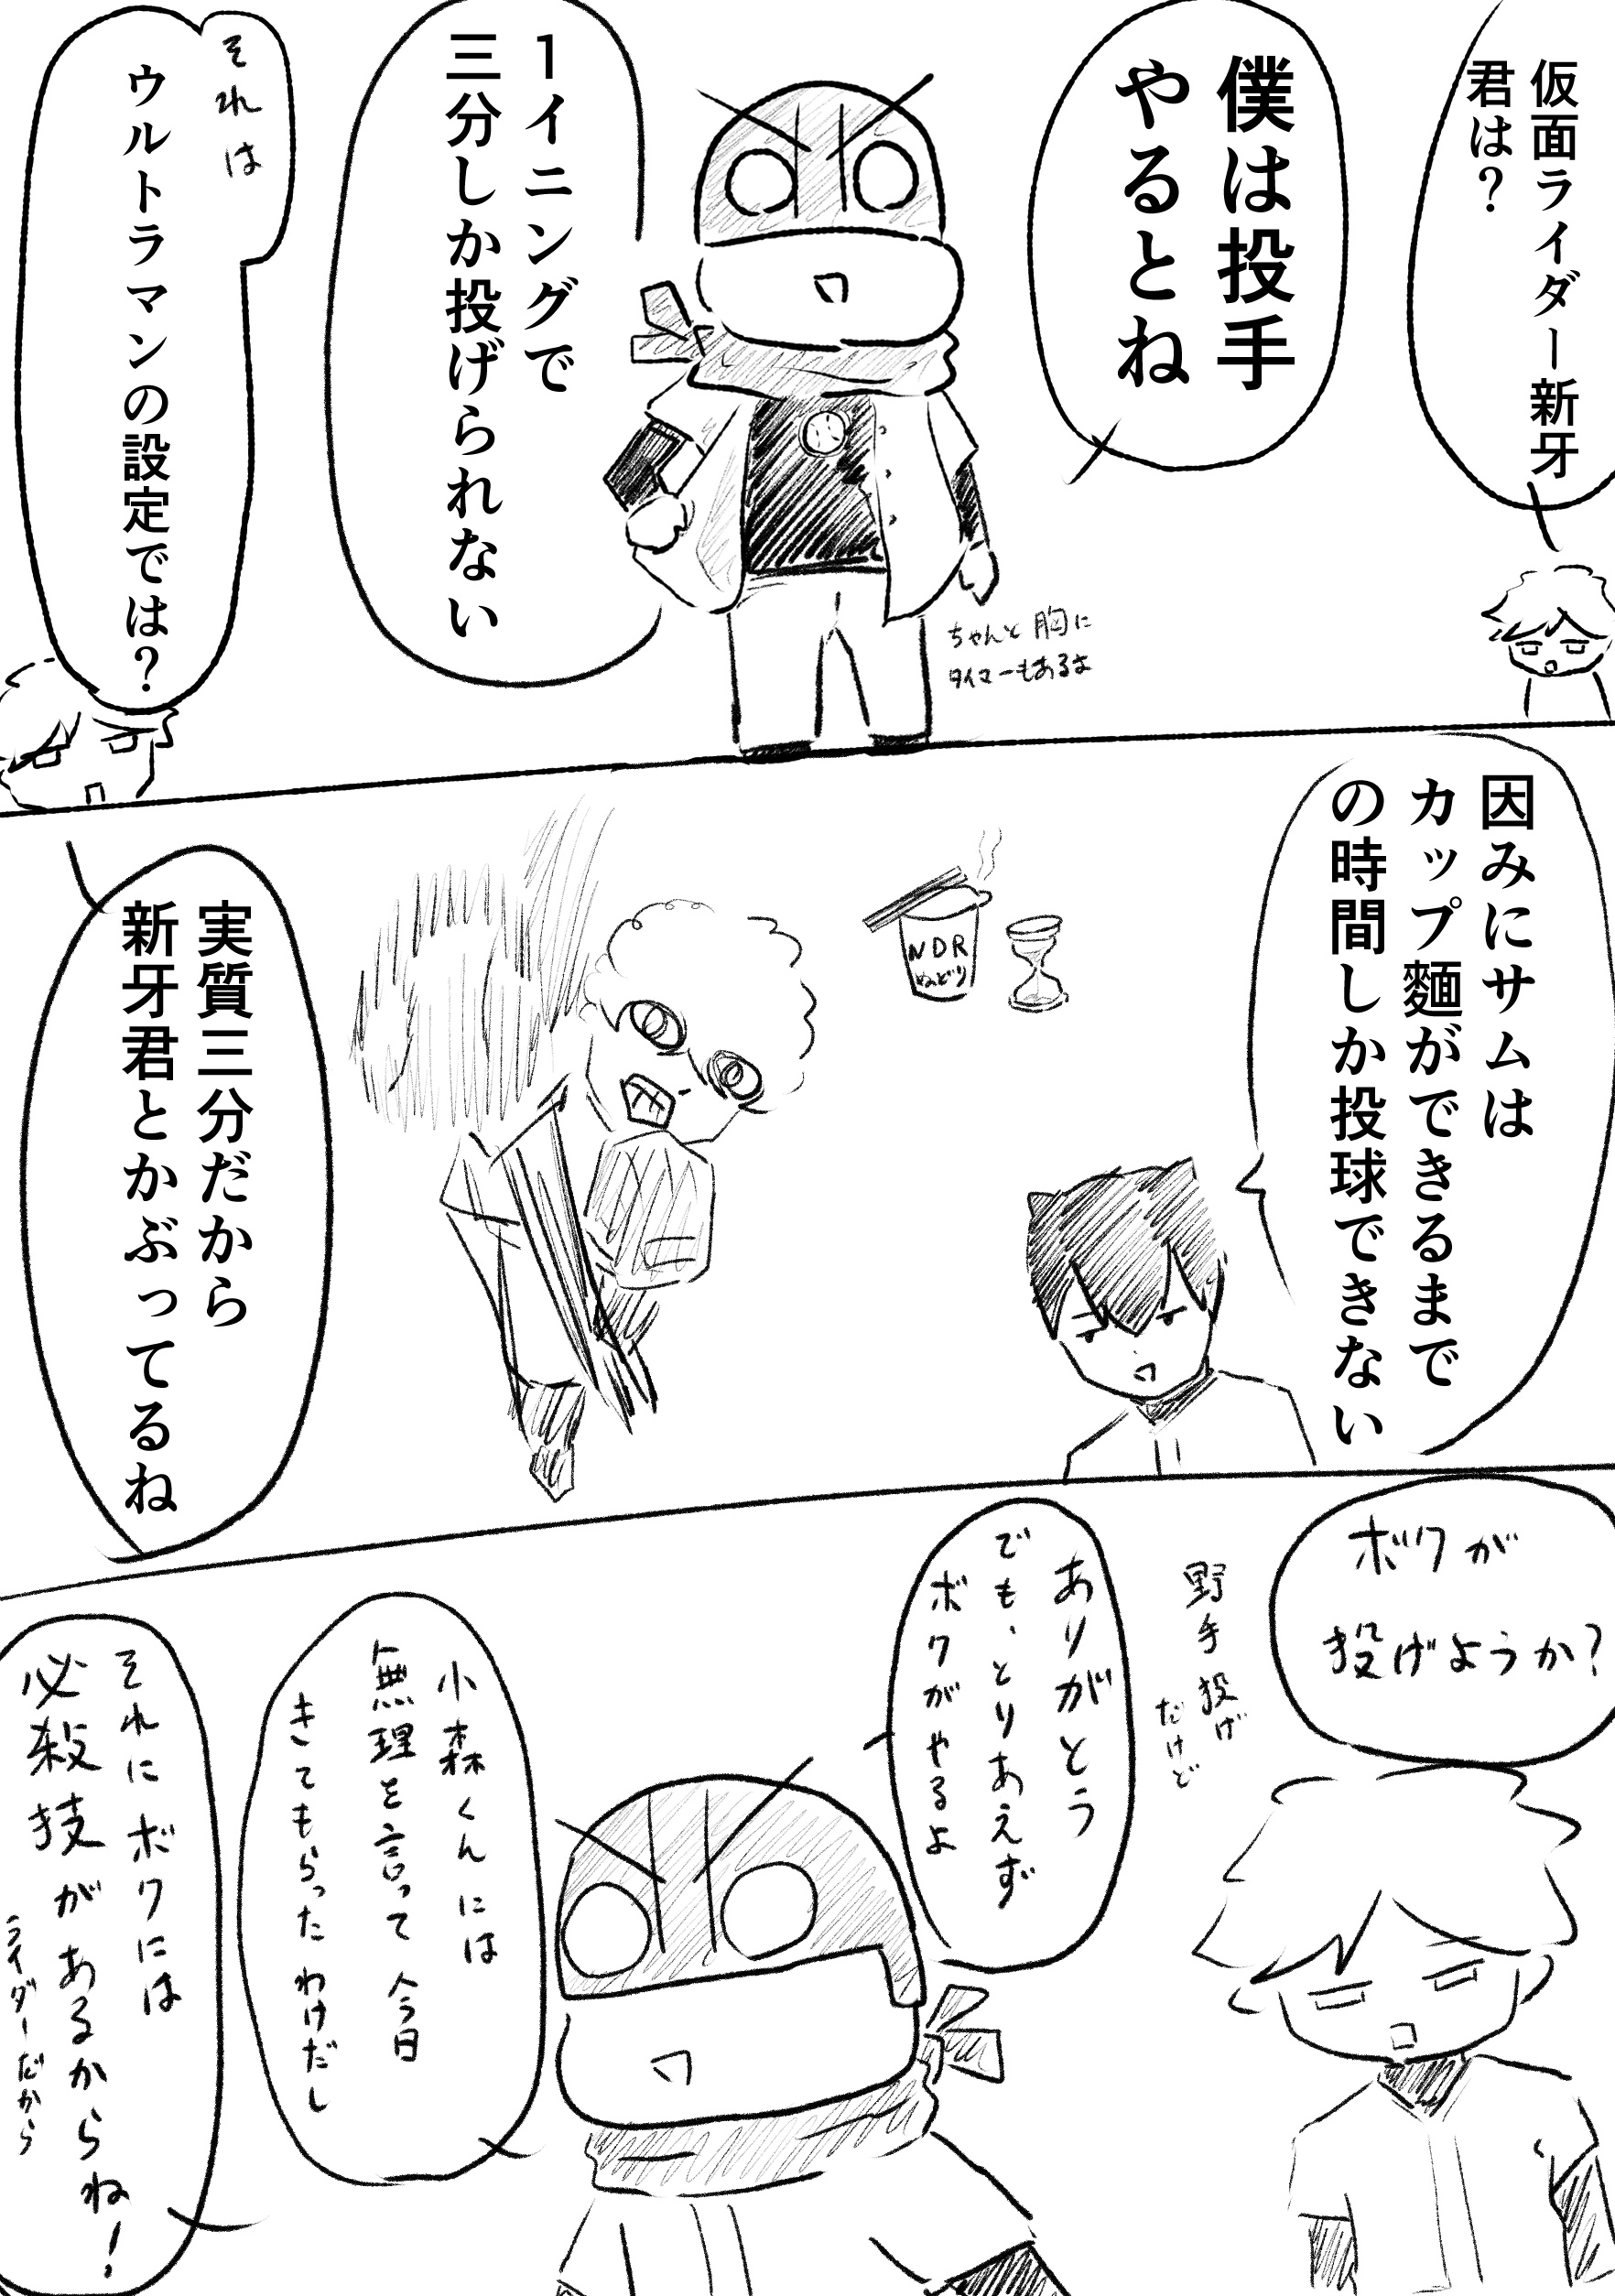 仮面ライダー新牙
君は？
僕は投手
やるとね
１イニングで
三分しか投げられない
ちゃんと胸に
タイマーもあるよ
それは
ウルトラマンの設定では？
因みにサムは
カップ麺ができるまで
の時間しか投球できない
NDR
ぬどり
実質三分だから
新牙君とかぶってるね
ボクが
投げようか？
野手投げ
だけど
ありがとう
でも、とりあえず
ボクがやるよ
小森くんには
無理を言って今日
きてもらったわけだし
それにボクには
必殺技があるからね！
ライダーだから